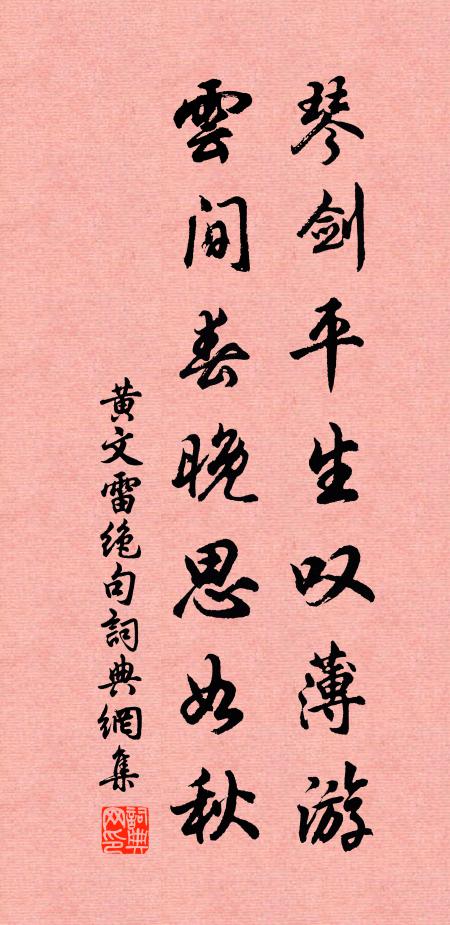 琴剑平生叹薄游
雲间春晚思如秋
黄文雷绝句詞典網集
詞典
网印